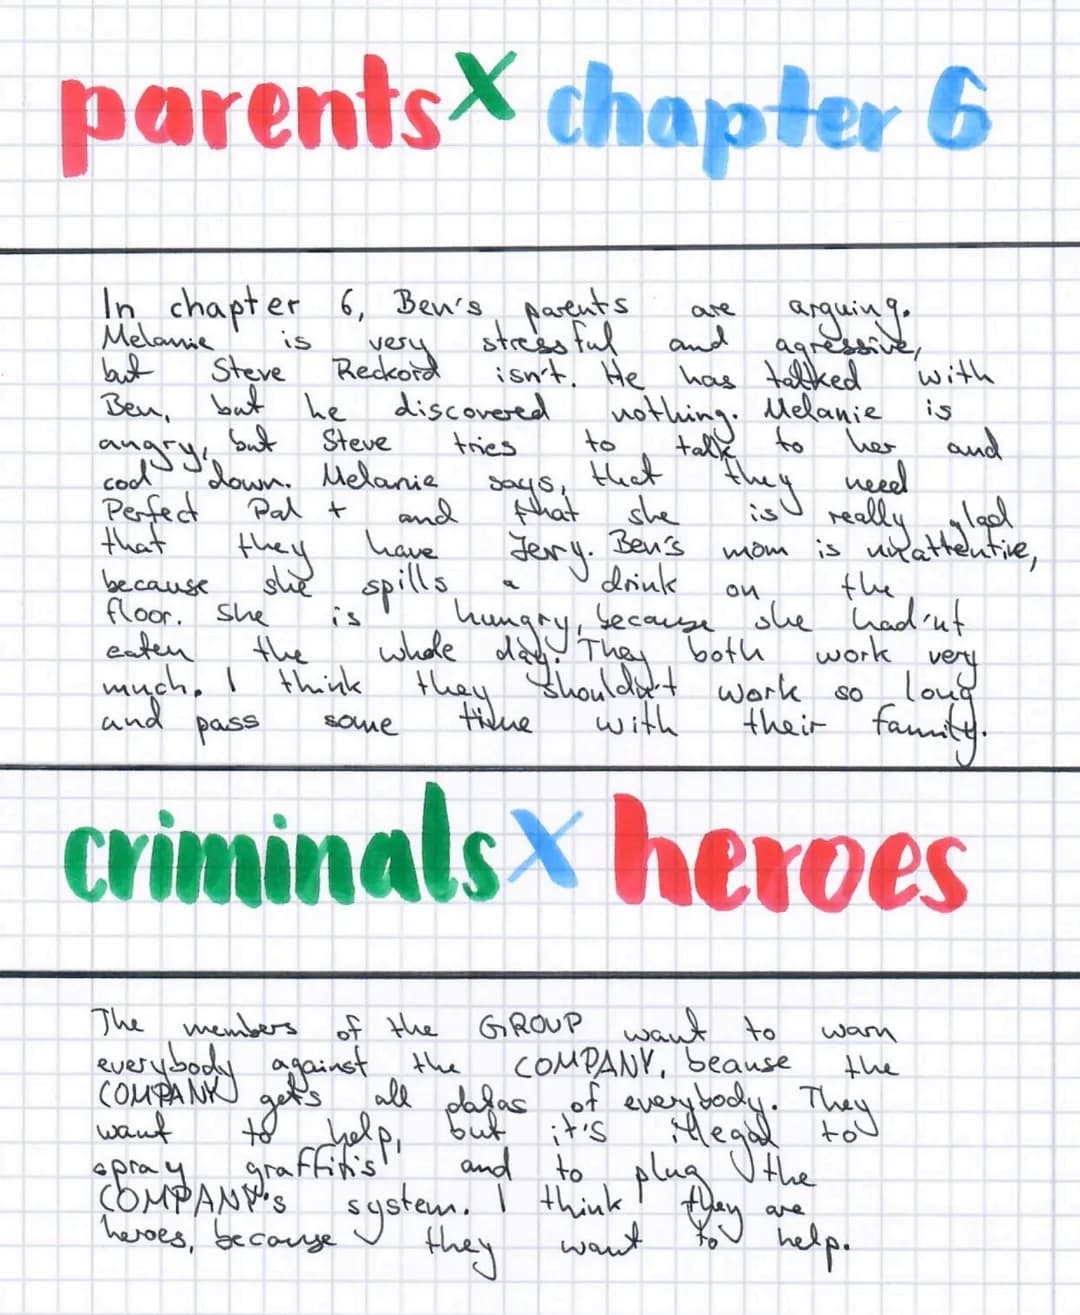 parents x chapter 6
In chapter 6, Ben's parents are arguing.
Melanie is very stressful and agressive,
but Steve Reckord isn't. He has talked with
Ben, but he discovered nothing. Melanie is
angry, but Steve tries to talk to her and
cool down. Melanie says, that they need
Perfect Pal + and that she is really glad
that they have Jerry. Ben's mom is unattentive,
because she spills a drink on the
floor. She is hungry, because she had'nt
eaten the whole day. They both work very
much. I think they shouldn't work so long
and pass some time with their family.
criminals x heroes
The members of the GROUP want to warn
everybody against the COMPANY, beause the
COMPANY gets all datas of everybody. They
want to help, but it's illegal to
spray graffitis and to plug the
COMPANY's system. I think they are
heroes, because they want to help.